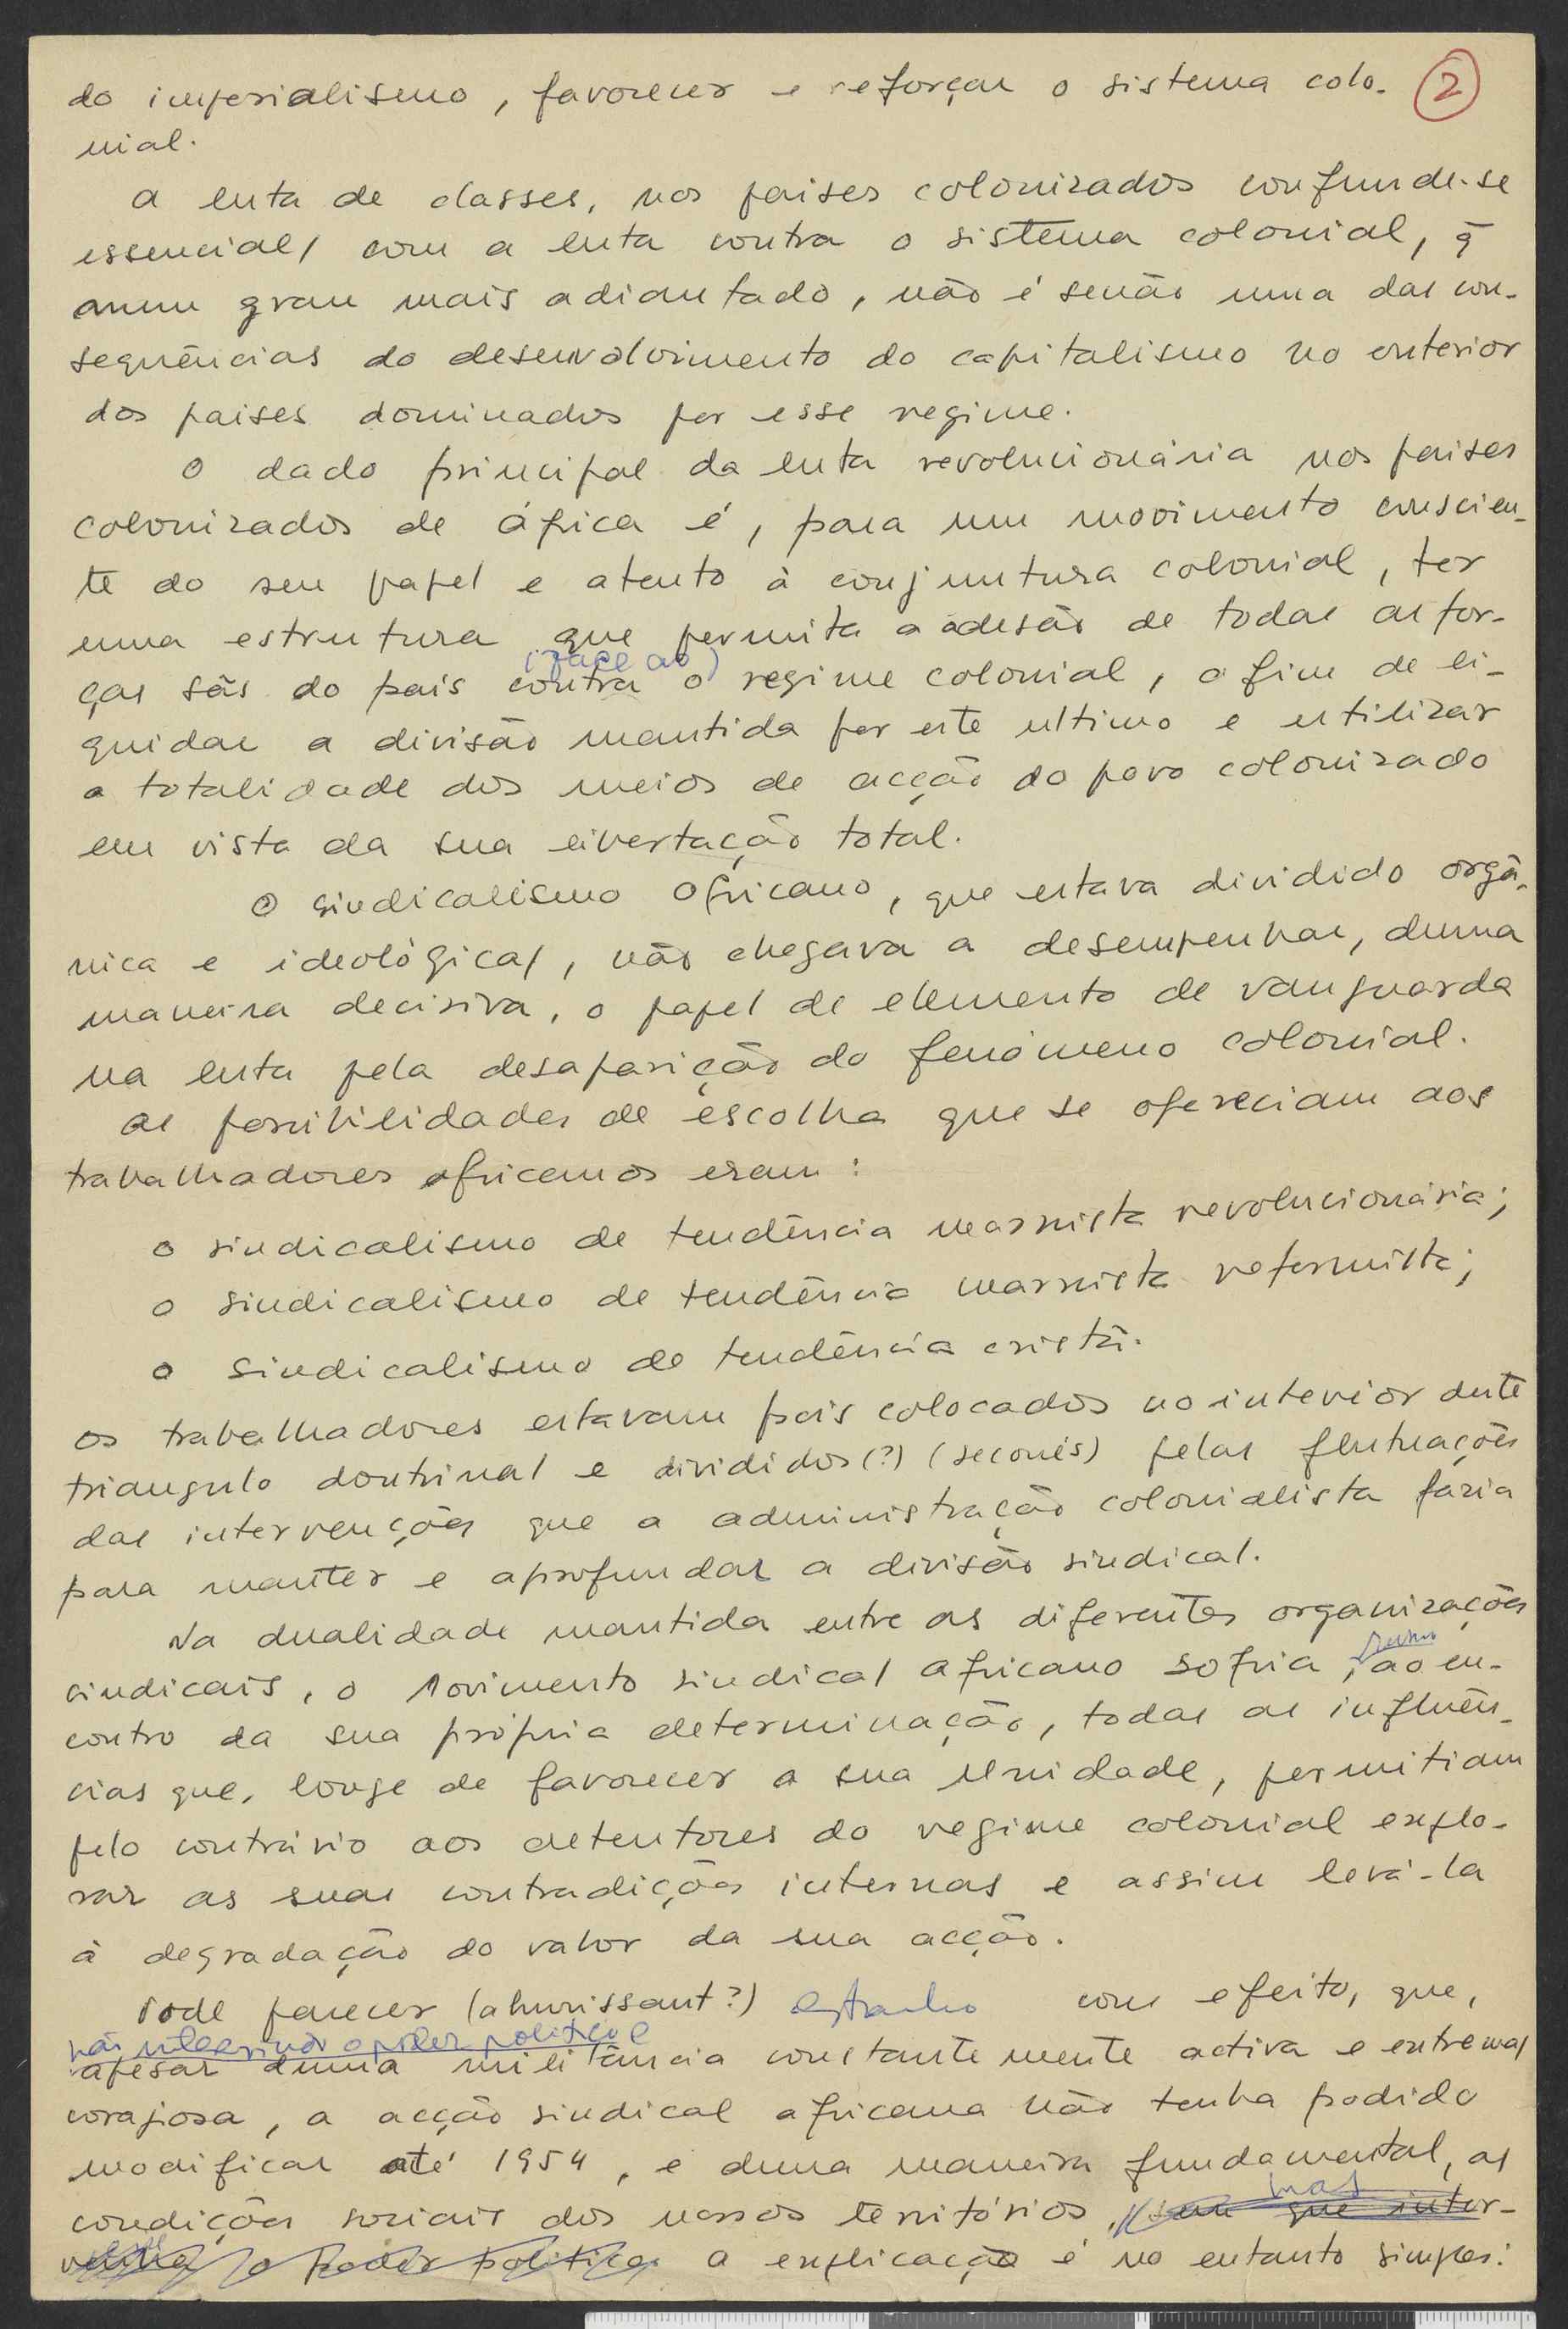 do imperialismo, favorecer e reforçar o sistema colo- 2
nial.
a luta de classes, nos paises colonizados confunde-se
essencial/ com a luta contra o sistema colonial, q̄
num grau mais adiantado, não é senão uma das con-
sequências do desenvolvimento do capitalismo no exterior
dos paises dominados por esse regime.
O dado principal da luta revolucionária nos paises
colonizados de áfrica é, para um movimento conscien-
te do seu papel e atento à conjuntura colonial, ter
uma estrutura que permita a adesão de todas as for-
(face ao)
ças sãs do pais contra o regime colonial, a fim de li-
quidar a divisão mantida por este ultimo e utilizar
a totalidade dos meios de acção do povo colonizado
em vista da sua libertação total.
O sindicalismo africano, que estava dividido orgâ-
nica e ideológica/, não chegava a desempenhar, duma
maneira decisiva, o papel de elemento de vanguarda
na luta pela desaparição do fenómeno colonial.
as possibilidades de escolha que se ofereciam aos
trabalhadores africanos eram:
o sindicalismo de tendência marxista revolucionária;
o sindicalismo de tendência marxista reformista;
o sindicalismo de tendência cristã.
os trabalhadores estavam pois colocados no interior deste
triangulo doutrinal e divididos (?) (secoués) pelas flutuações
das intervenções que a administração colonialista fazia
para manter e aprofundar a divisão sindical.
Na dualidade mantida entre as diferentes organizações
sindicais, o movimento sindical africano sofria, ao en-
contro da sua própria determinação, todas as influên-
cias que, longe de favorecer a sua unidade, permitiam
pelo contrário aos detentores do regime colonial explo-
rar as suas contradições internas e assim levá-la
à degradação do valor da sua acção.
Pode parecer (ahurissant?) estranho com efeito, que,
não intervindo o poder politico
apesar duma militância constantemente activa e extrema/
corajosa, a acção sindical africana não tenha podido
modificar até 1954, e duma maneira fundamental, as
mas
condições sociais dos nossos territórios, sem que inter-
o poder politico a explicação é no entanto simples: